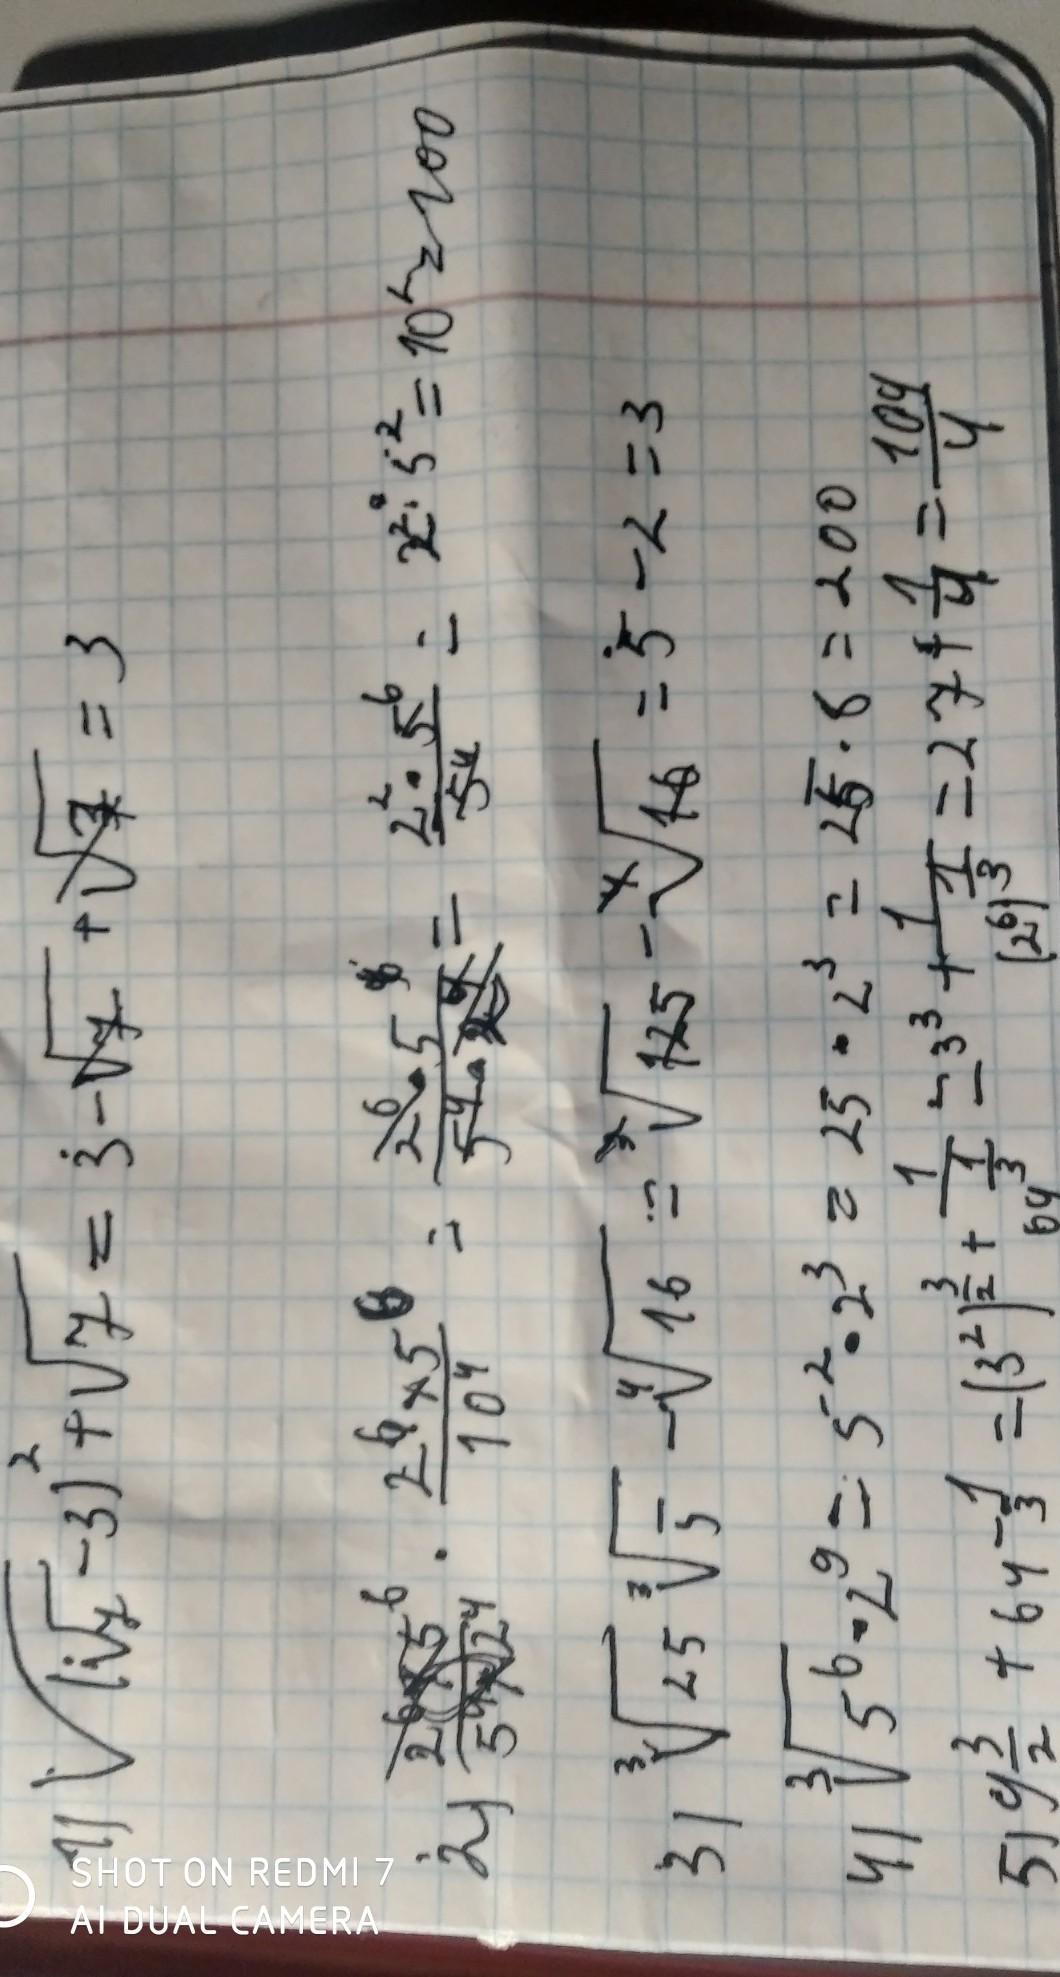 1) √(√7 -3)² + √7 = 3 - √7 + √7 = 3
2) · 2⁶ × 5⁶ / 10⁴ = 2⁶ · 5⁶ / 5⁴ · = 2² · 5⁶ / 5⁴ = 2² · 5² = 10² = 100
3) ³√25 ³√5 - ⁴√16 = ³√125 - ⁴√16 = 5 - 2 = 3
4) ³√5⁶ · 2⁹ = 5² · 2³ = 25 · 2³ = 25 · 8 = 200
5) 9 3/2 + 64 - 1/3 = (3²) 3/2 + 1 / 64 1/3 = 3³ + 1 / (2⁶) 1/3 = 27 + 1/4 = 109/4
SHOT ON REDMI 7
AI DUAL CAMERA